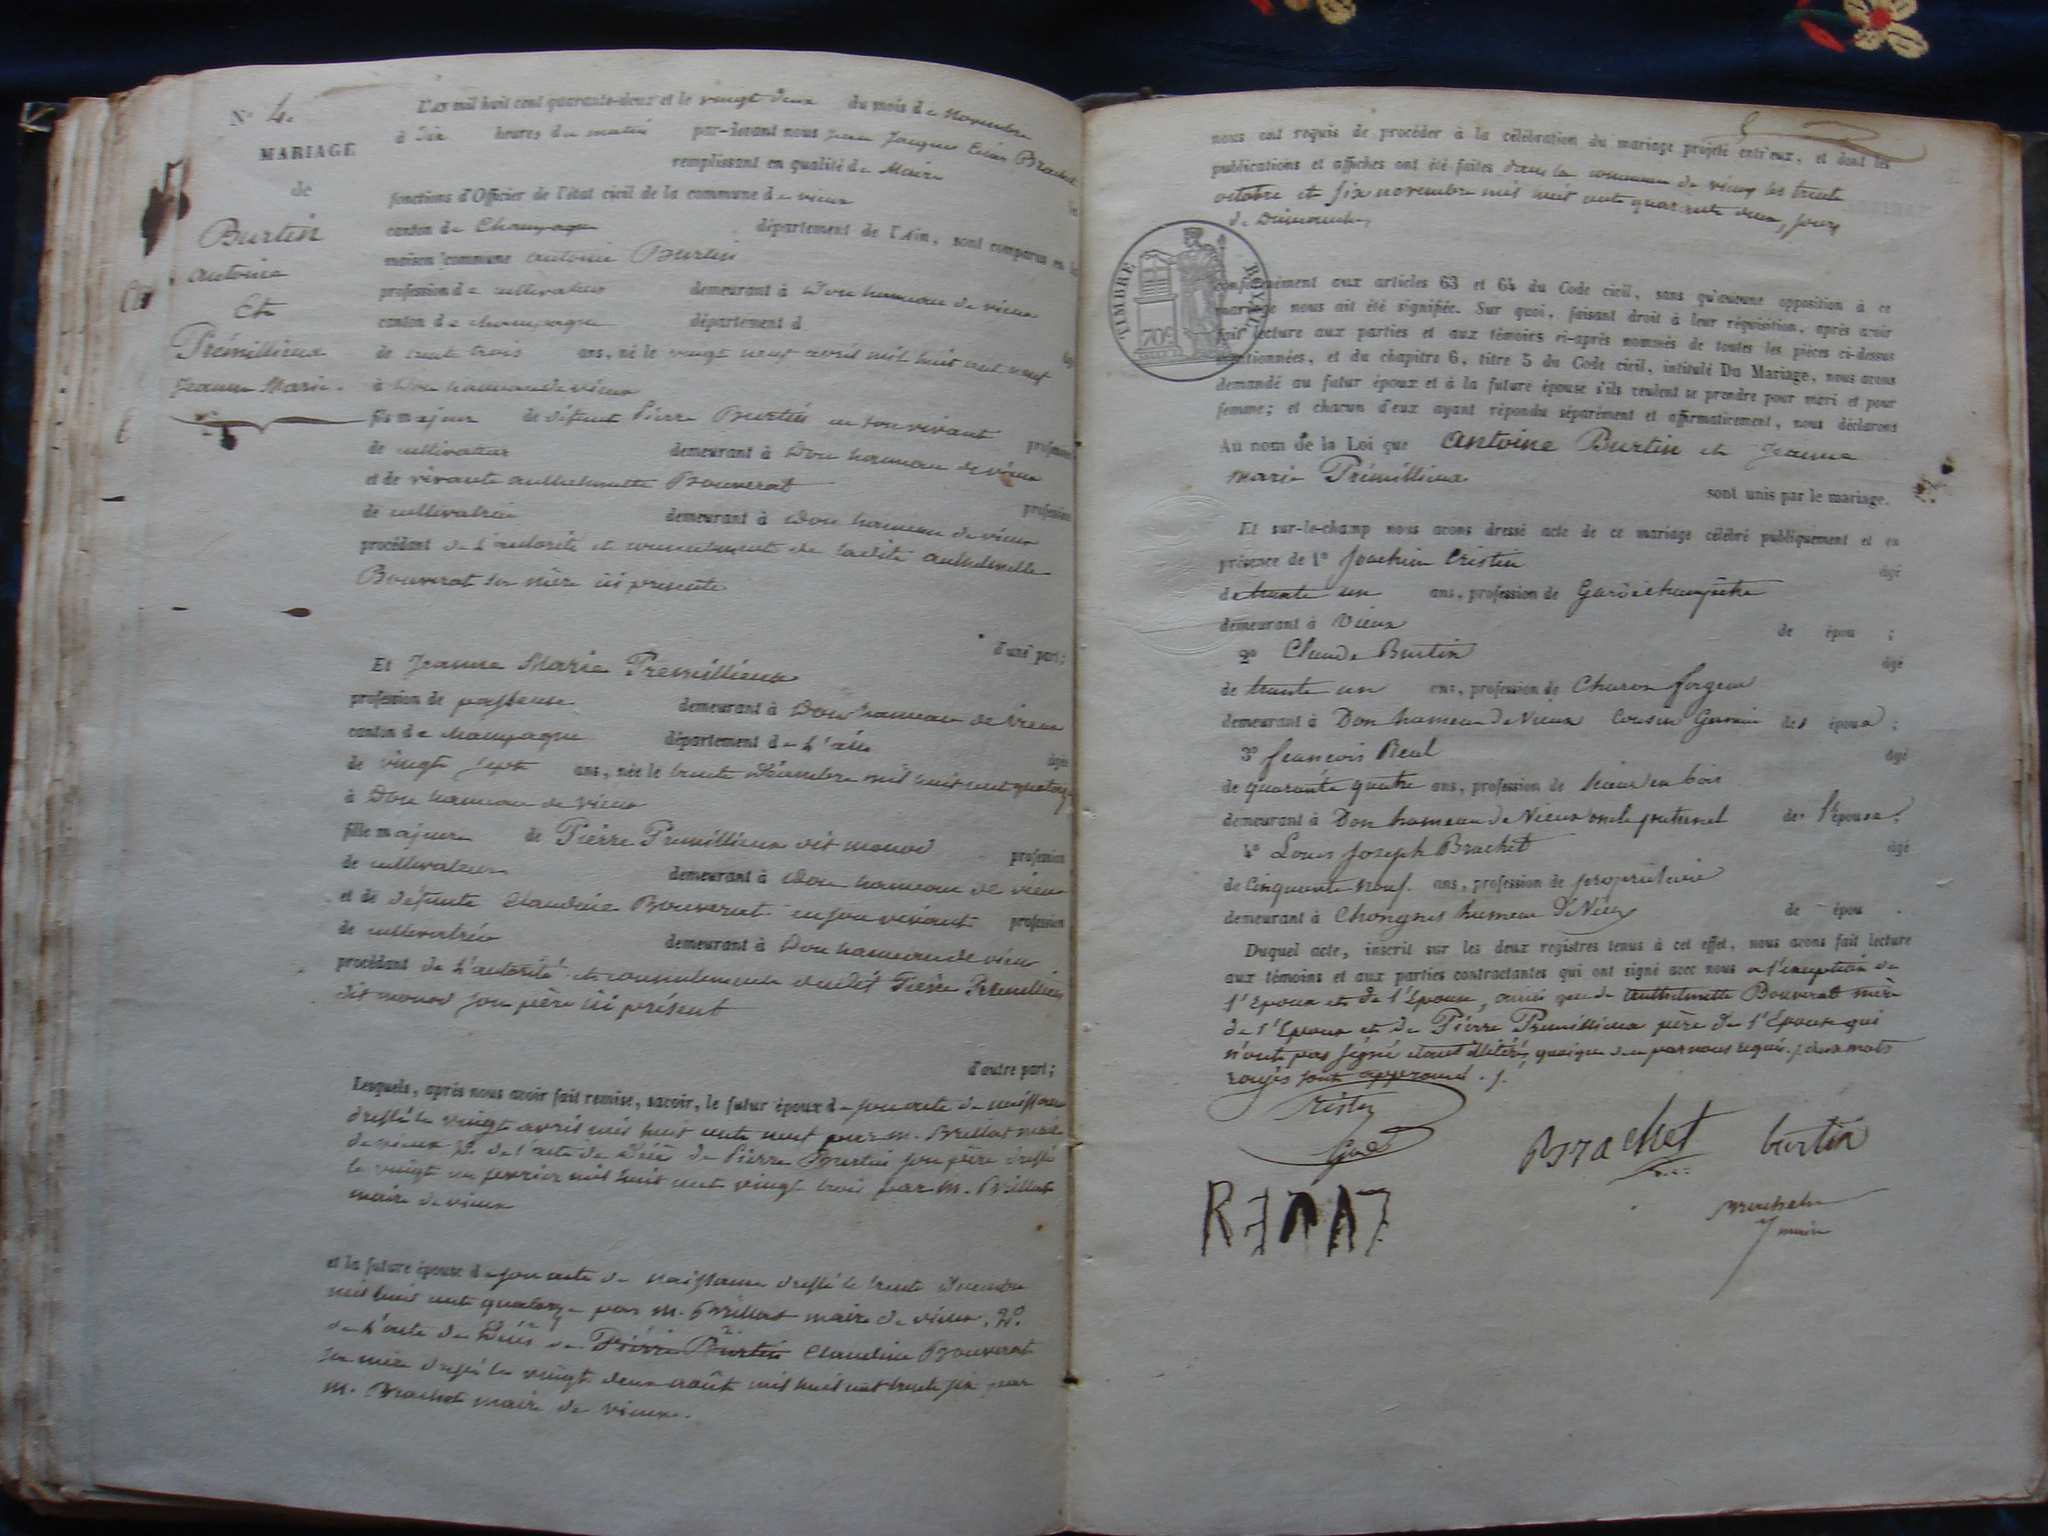 N° 4.
MARIAGE
de
Burtin
antoine
Et
Prémillieux
Jeanne Marie.
L'AN mil huit cent quarante-deux et le vingt deux du mois de Novembre
à dix heures du matin par-devant nous jean Jacques Brachet
remplissant en qualité de Maire les
fonctions d'Officier de l'état civil de la commune de vieux
canton de Champagne département de l'Ain, sont comparus en la
maison commune antoine Burtin
profession de cultivateur demeurant à Don hameau de vieux
canton de champagne département d
de trente trois ans, né le vingt neuf avril mil huit cent neuf
à Don hameau de vieux
fils majeur de défunt Pierre Burtin en son vivant profession
de cultivateur demeurant à Don hameau de vieux
et de vivante anthelmette Bouverat profession
de cultivatrice demeurant à Don hameau de vieux
procédant de l'autorité et consentement de ladite anthelmette
Bouverat sa mère ici presente
d'une part;
Et Jeanne Marie Premillieux
profession de demeurant à Don hameau de vieux
canton de Champagne département de l'ain âgée
de vingt sept ans, née le trente décembre mil huit cent quatorze
à Don hameau de vieux
fille majeure de Pierre Premillieux dit monod profession
de cultivateur demeurant à Don hameau de vieux
et de défunte Claudine Bouverat en son vivant profession
de cultivatrice demeurant à Don hameau de vieux
procédant de l'autorité et consentement dudit Pierre Premillieux
dit monod son père ici présent
d'autre part;
Lesquels, après nous avoir fait remise, savoir, le futur époux de son acte de naissance
dressé le vingt avril mil huit cent neuf par M. Brillat maire
de vieux 2° de l'acte de décès de Pierre Burtin son père dressé
le vingt un janvier mil huit cent vingt trois par M. Brillat
maire de vieux
et la future épouse de son acte de naissance dressé le trente décembre
mil huit cent quatorze par M. Brillat maire de vieux. 2°
de l'acte de décès de Pierre Burtin Claudine Bouverat
sa mère dressé le vingt deux août mil huit cent trente six par
M. Brachet maire de vieux.
nous ont requis de procéder à la célébration du mariage projeté entr'eux, et dont les
publications et affiches ont été faites dans la commune de vieux les trente
octobre et six novembre mil huit cent quarante deux, jours
de Dimanche,
TIMBRE ROYAL
70c
conformément aux articles 63 et 64 du Code civil, sans qu'aucune opposition à ce
mariage nous ait été signifiée. Sur quoi, faisant droit à leur réquisition, après avoir
fait lecture aux parties et aux témoins ci-après nommés de toutes les pièces ci-dessus
mentionnées, et du chapitre 6, titre 5 du Code civil, intitulé Du Mariage, nous avons
demandé au futur époux et à la future épouse s'ils veulent se prendre pour mari et pour
femme; et chacun d'eux ayant répondu séparément et affirmativement, nous déclarons
Au nom de la Loi que Antoine Burtin et Jeanne
Marie Prémillieux
sont unis par le mariage.
Et sur-le-champ nous avons dressé acte de ce mariage célébré publiquement et en
présence de 1° Joachim Cristin âgé
de trente un ans, profession de Garde champêtre
demeurant à Vieux de épou ;
2° Claude Burtin âgé
de trente un ans, profession de Charon forgeur
demeurant à Don hameau de Vieux Cousin Germain des époux ;
3° francois Beal âgé
de quarante quatre ans, profession de Scieur en bois
demeurant à Don hameau de Vieux oncle paternel de l'épouse ;
4° Louis Joseph Brachet âgé
de Cinquante neuf ans, profession de propriétaire
demeurant à Chongnes hameau de Vieux de épou .
Duquel acte, inscrit sur les deux registres tenus à cet effet, nous avons fait lecture
aux témoins et aux parties contractantes qui ont signé avec nous a l'exception de
l'Epoux et de l'Epouse, ainsi que de anthelmette Bouverat mère
de l'Epoux et de Pierre Premillieux père de l'Epouse qui
n'ont pas signé etant illitérés quoique de par nous requis. deux mots
rayés sont approuvé.
Cristin
Garde
Brachet
burtin
Brachet
maire